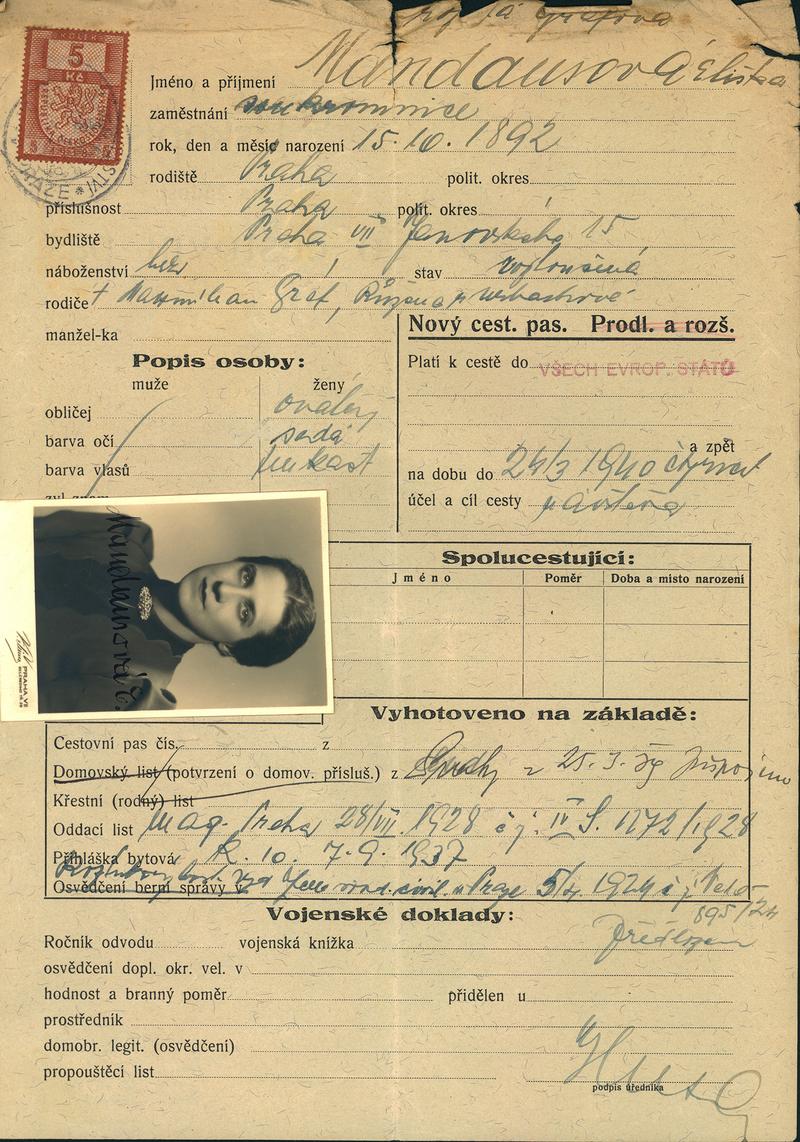 KOLEK
5
Kč
Jméno a příjmení Mandausová Eliška
zaměstnání soukromnice
rok, den a měsíc narození 15.10.1892
rodiště Praha polit. okres
příslušnost Praha polit. okres
bydliště Praha VII Janovského 15
náboženství bez stav rozloučená
rodiče + Maxmilian Gráf, Růžena
manžel-ka
Nový cest. pas. Prodl. a rozš.
Popis osoby:
muže ženy
Platí k cestě do VŠECH EVROP. STÁTŮ
obličej oválný
barva očí šedá
barva vlasů
a zpět
na dobu do 24/3 1940
účel a cíl cesty návštěva
Mandausová E.
PRAHA VII
Spolucestující:
Jméno Poměr Doba a místo narození
Vyhotoveno na základě:
Cestovní pas čís. z
Domovský list (potvrzení o domov. přísluš.) z Prahy z 25.3.39
Křestní (rodný) list
Oddací list mag. Praha 28/VII. 1928 čj. IV S. 1172/1928
Přihláška bytová R. 10. 7.9.1937
Osvědčení berní správy v
895/24
Vojenské doklady:
Ročník odvodu vojenská knížka
osvědčení dopl. okr. vel. v
hodnost a branný poměr přidělen u
prostředník
domobr. legit. (osvědčení)
propouštěcí list
podpis úředníka